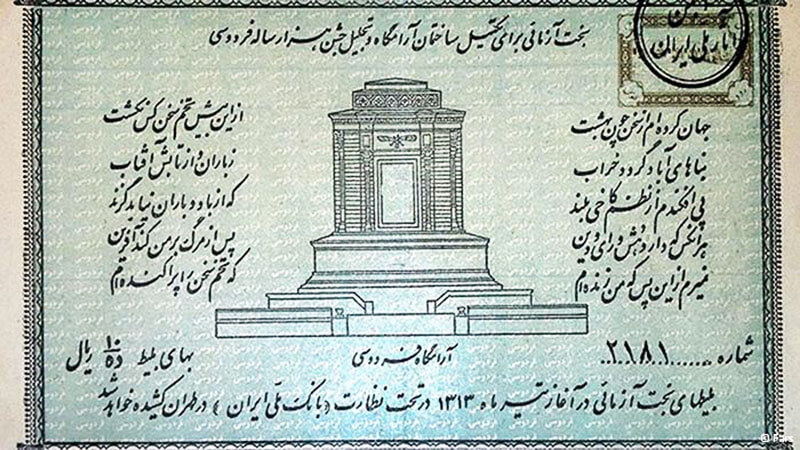 انجمن
آثار ملی ایران
بخت آزمائی برای تکمیل ساختمان آرامگاه و تجلیل جشن هزار ساله فردوسی
جهان کرده ام از سخن چون بهشت از این بیش تخم سخن کس نکشت
بناهای آباد گردد خراب ز باران و از تابش آفتاب
پی افکندم از نظم کاخی بلند که از باد و باران نیابد گزند
هر آنکس که دارد هش و رای و دین پس از مرگ بر من کند آفرین
نمیرم از این پس که من زنده ام که تخم سخن را پراکنده ام
شماره .......۲۱۸۱.. آرامگاه فردوسی بهای بلیط ۱۰ ده ریال
بلیطهای بخت آزمائی در آغاز تیر ماه ۱۳۱۳ در تحت نظارت (بانک ملی ایران) در طهران کشیده خواهد شد
© Fars